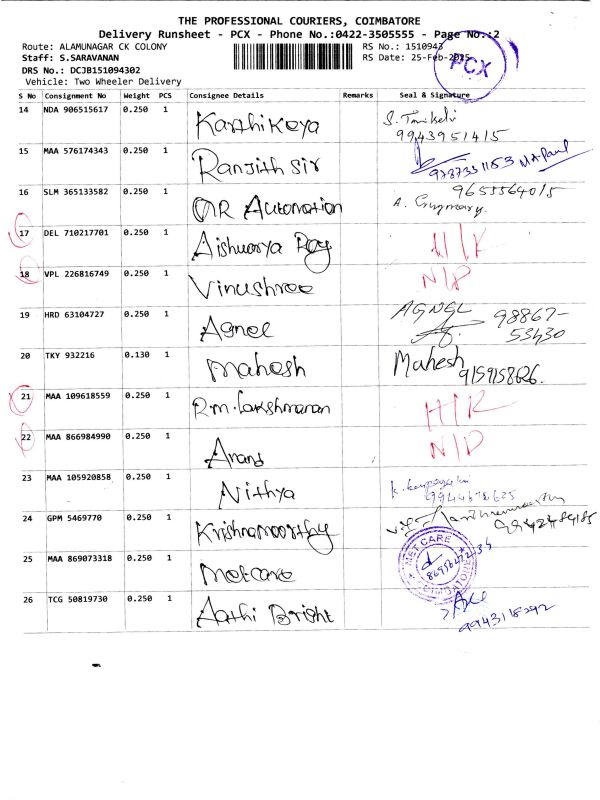 THE PROFESSIONAL COURIERS, COIMBATORE
Delivery Runsheet - PCX - Phone No.:0422-3505555 - Page No.:2
Route: ALAMUNAGAR CK COLONY RS No.: 1510943
Staff: S.SARAVANAN RS Date: 25-Feb-2025
PCX
DRS No.: DCJB151094302
Vehicle: Two Wheeler Delivery
S No Consignment No Weight PCS Consignee Details Remarks Seal & Signature
14 NDA 906515617 0.250 1 Karthikeya
9943951415
15 MAA 576174343 0.250 1 Ranjith Sir
16 SLM 365133582 0.250 1 QR Automation 9655564015
17 DEL 710217701 0.250 1 Aishwarya Roy
18 VPL 226816749 0.250 1 Vinushree N/D
19 HRD 63104727 0.250 1 Agnel AGNEL 98867-53430
20 TKY 932216 0.130 1 Mahesh Mahesh
21 MAA 109618559 0.250 1 R.m.Lakshmanan
22 MAA 866984990 0.250 1 Anand N/D
23 MAA 105920858 0.250 1 Nithya
24 GPM 5469770 0.250 1 Krishnamoorthy
25 MAA 869073318 0.250 1 Metcare
MET CARE
COIMBATORE
26 TCG 50819730 0.250 1 Aathi Bright
9943118292